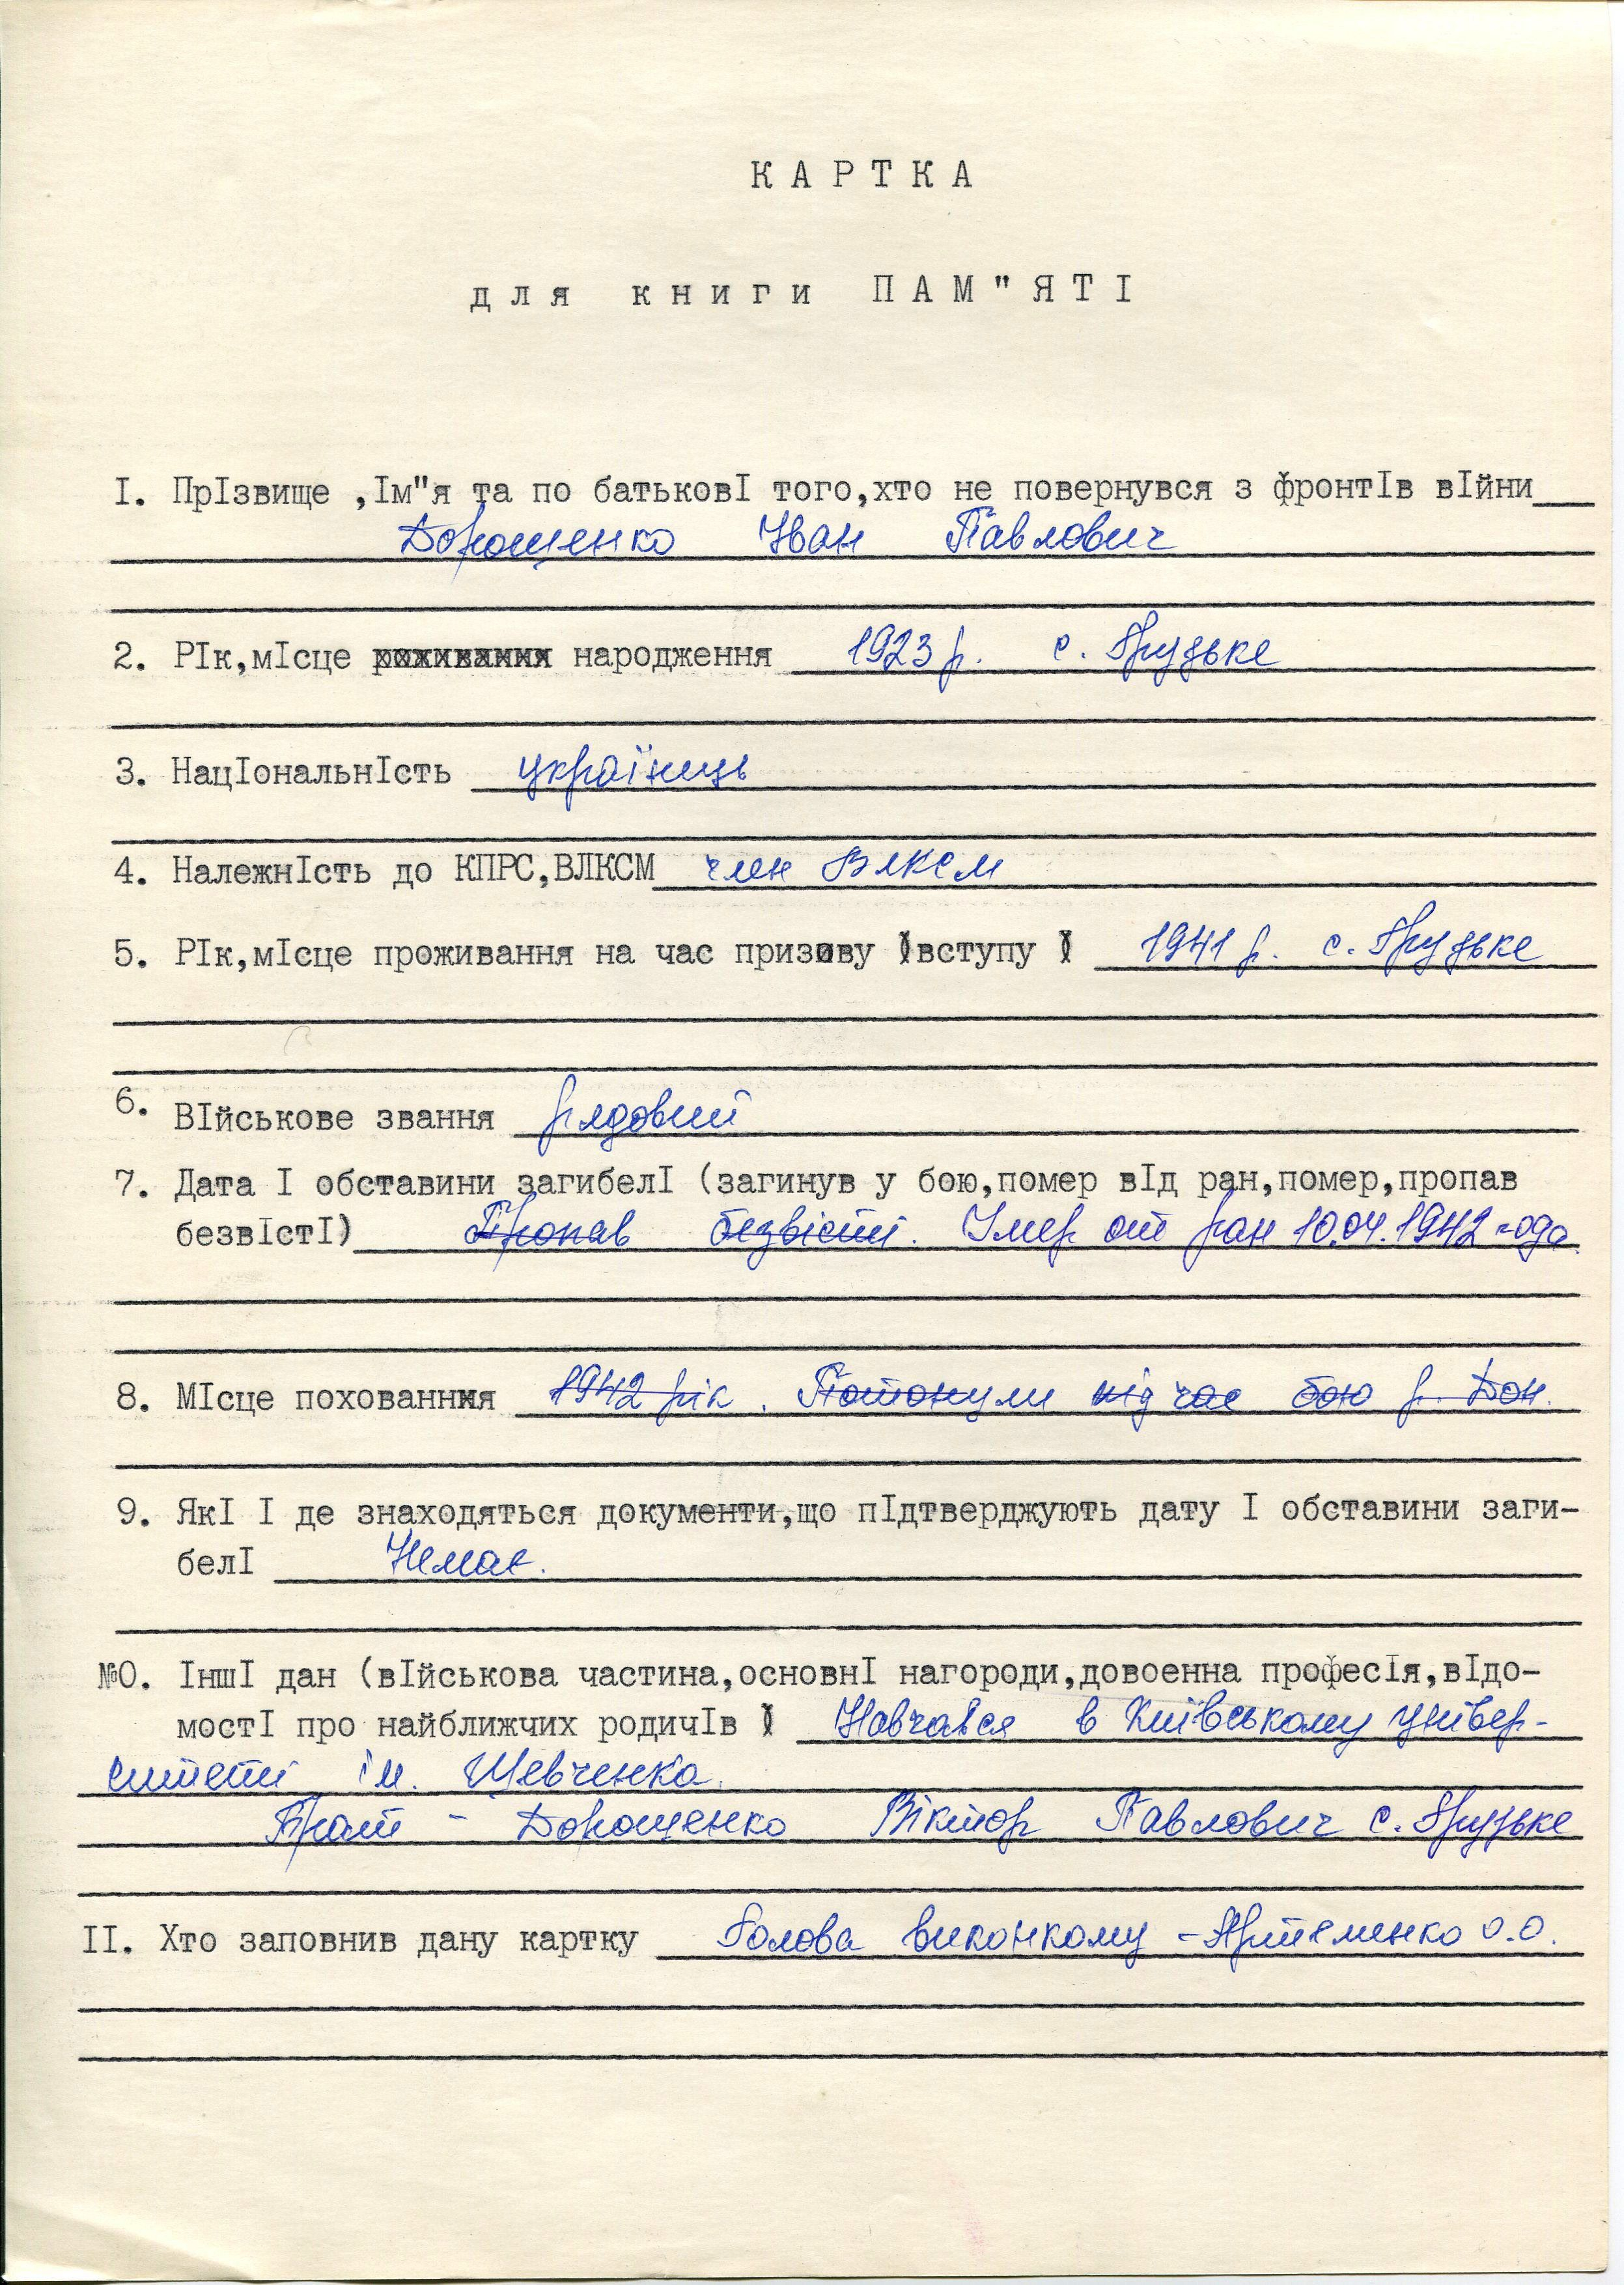 КАРТКА
для книги ПАМ"ЯТІ
І. ПрІзвище ,Ім"я та по батьковІ того,хто не повернувся з фронтІв вІйни
Дорошенко Іван Павлович
2. РІк,мІсце народження 1923 р. с. Грузьке
3. НацІональнІсть українець
4. НалежнІсть до КПРС,ВЛКСМ член ВЛКСМ
5. РІк,мІсце проживання на час призову вступу 1941 р. с. Грузьке
6. ВІйськове звання рядовий
7. Дата І обставини загибелІ (загинув у бою,помер вІд ран,помер,пропав
безвІстІ) Пропав безвісті. Умер от ран 10.04.1942 года
8. МІсце похованння 1942 рік. Потонули під час бою р. Дон.
9. ЯкІ І де знаходяться документи,що пІдтверджують дату І обставини заги-
белІ Немає.
№0. ІншІ дан (вІйськова частина,основнІ нагороди,довоенна професІя,вІдо-
мостІ про найближчих родичІв Навчався в Київському універ-
ситеті ім. Шевченка.
Брат - Дорошенко Віктор Павлович с. Грузьке
ІІ. Хто заповнив дану картку Голова виконкому - Артеменко О.О.